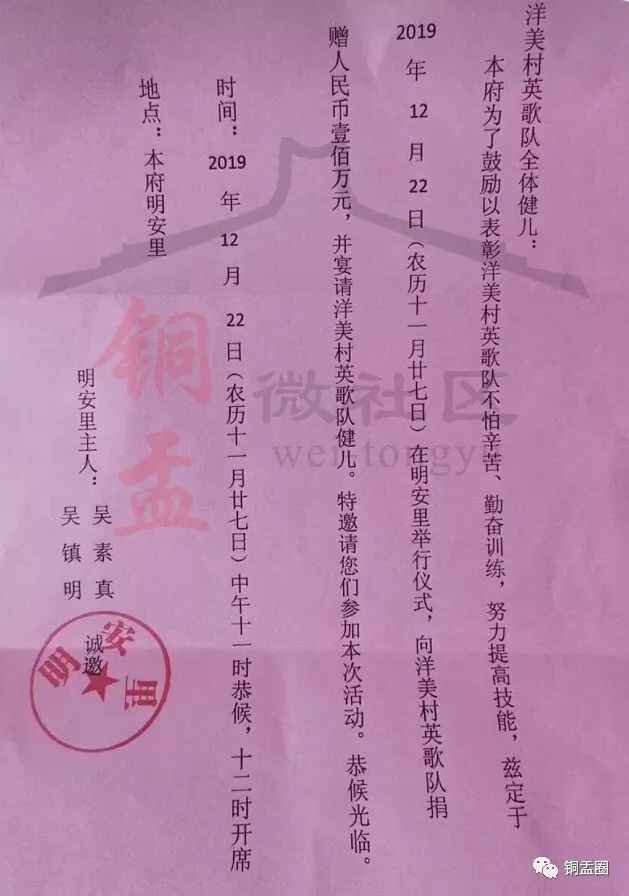 洋美村英歌队全体健儿：
本府为了鼓励以表彰洋美村英歌队不怕辛苦、勤奋训练，努力提高技能，兹定于
2019年12月22日（农历十一月廿七日）在明安里举行仪式，向洋美村英歌队捐
赠人民币壹佰万元，并宴请洋美村英歌队健儿。特邀请您们参加本次活动。恭候光临。
时间：2019年12月22日（农历十一月廿七日）中午十一时恭候，十二时开席
地点：本府明安里
明安里主人：吴素真
吴镇明
诚邀
明安里
铜盂
微社区
wei.tongyu
铜盂圈